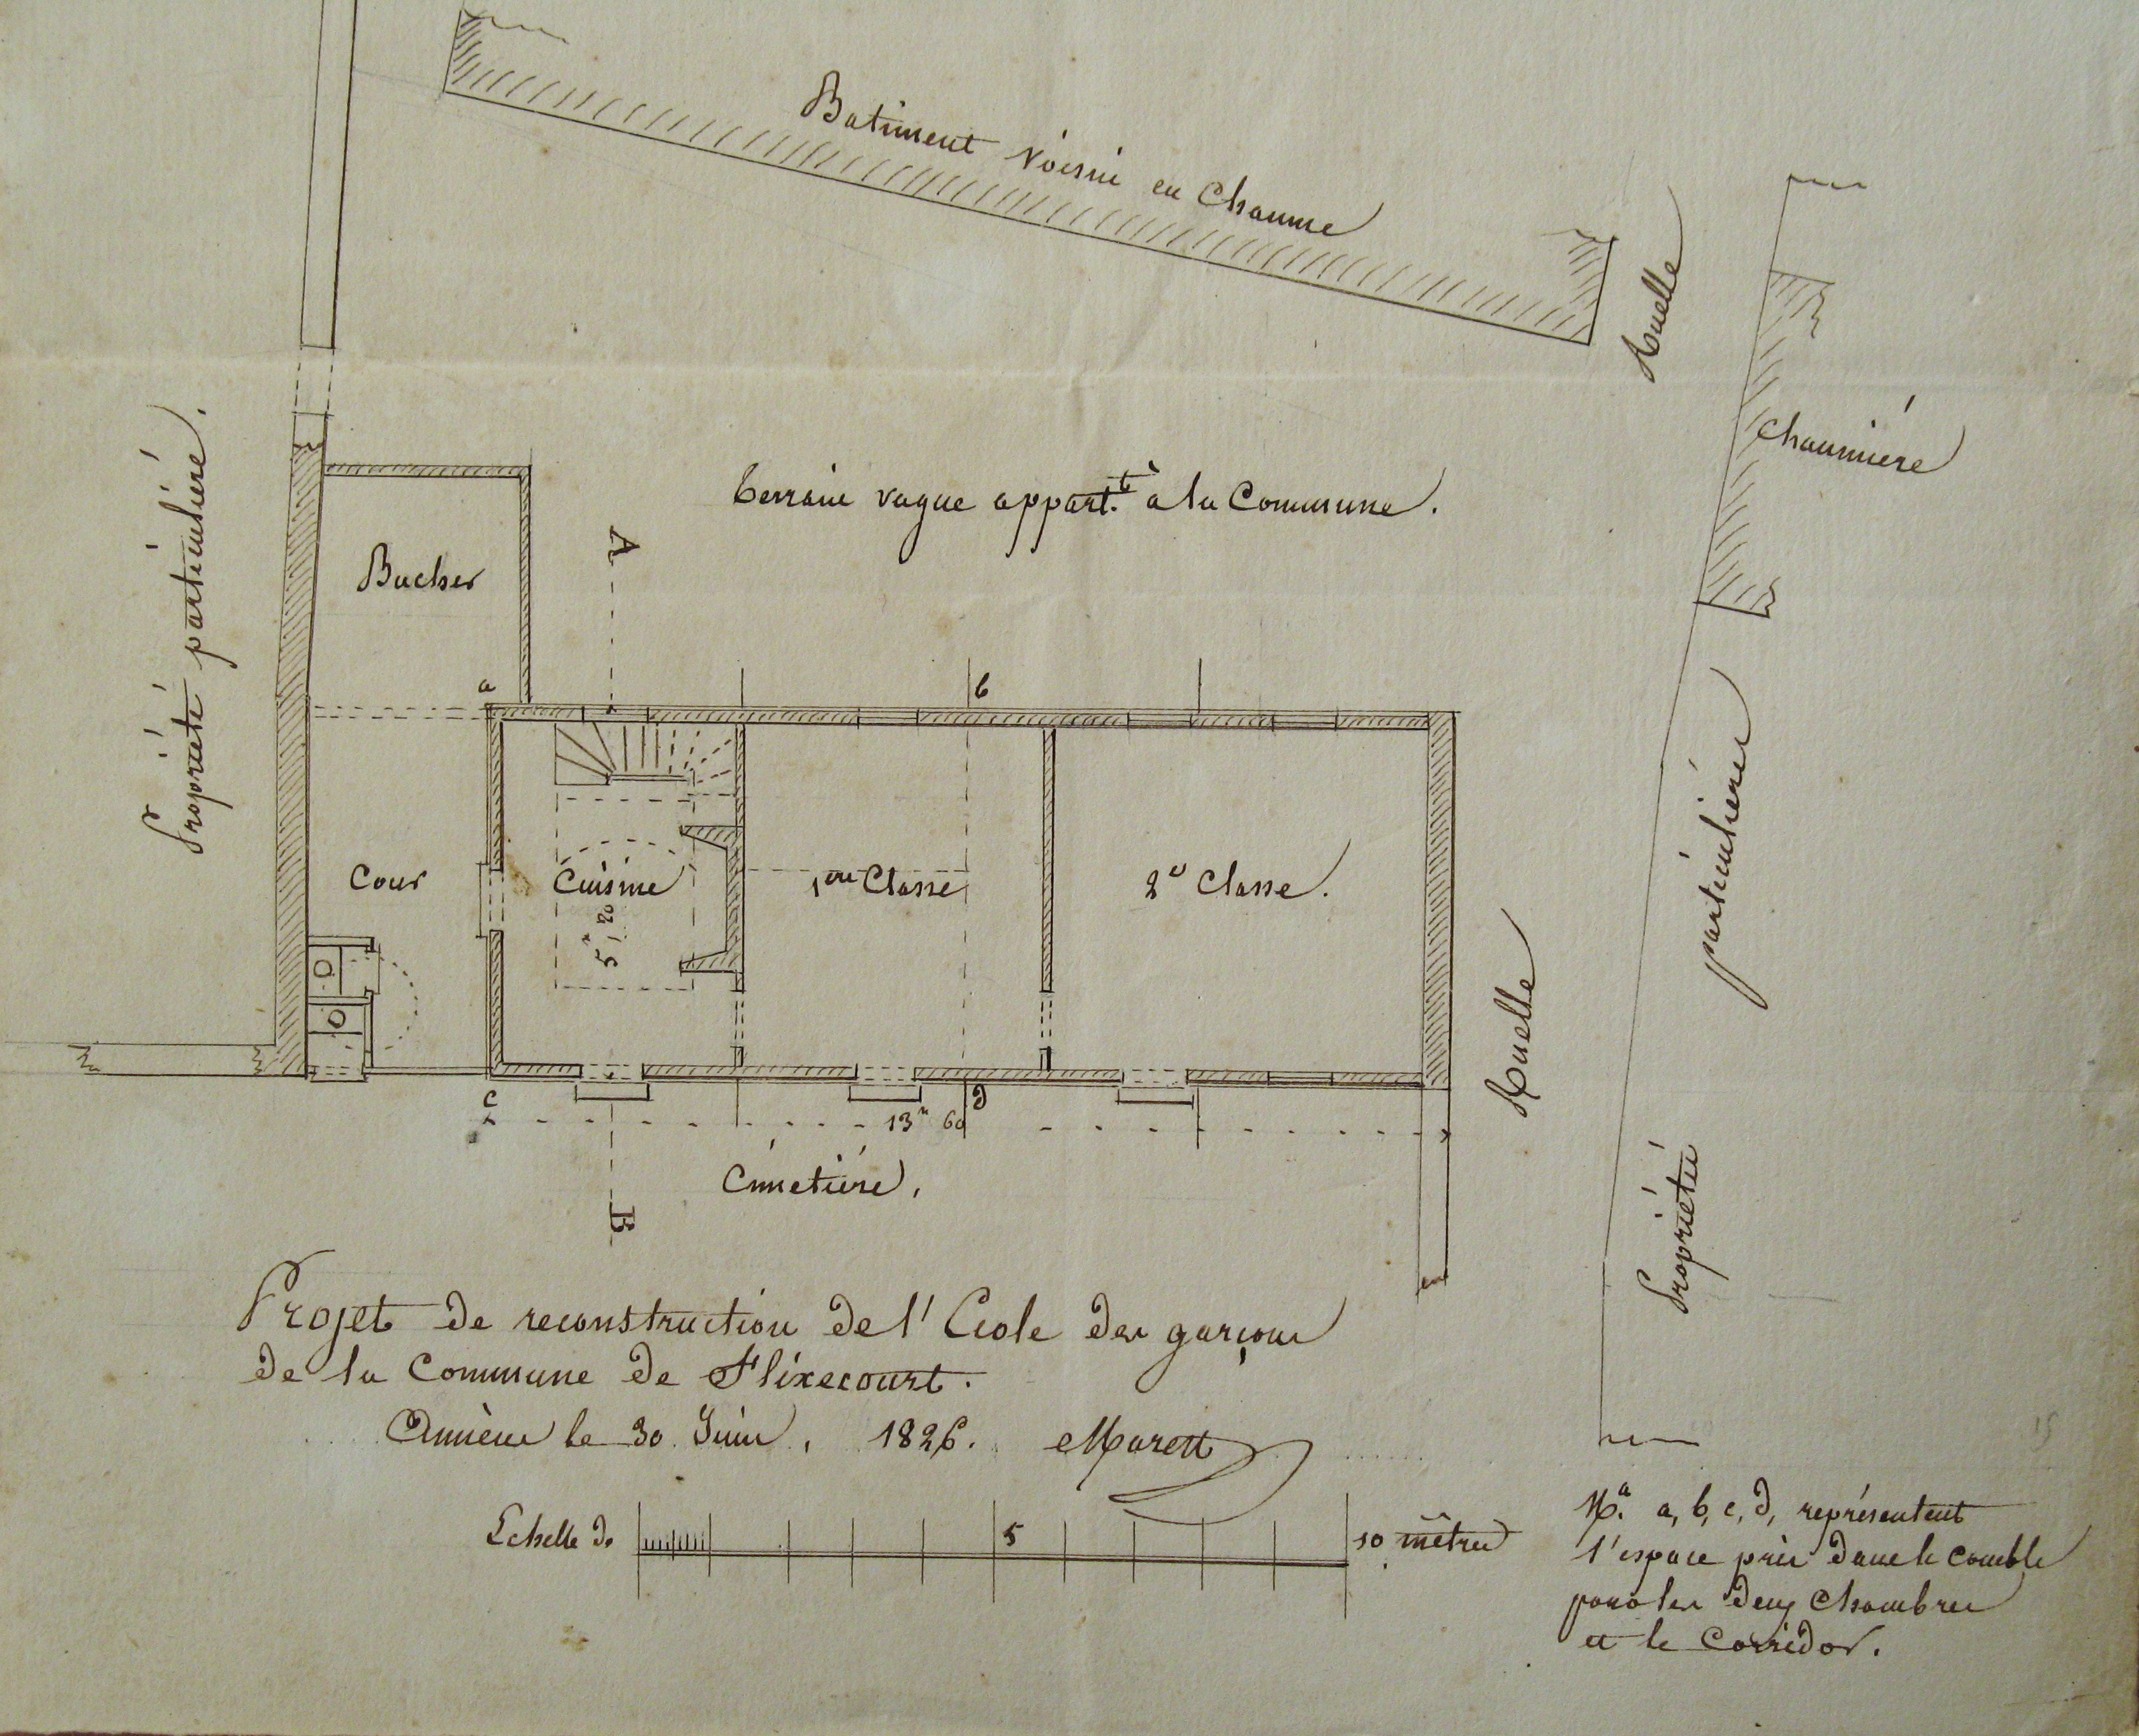 Batiment voisin en Chaume
Ruelle
Chaumiere
Terrain vague appart.t à la Commune.
Propriété particulière.
Bucher
A
a
b
Cour
Cuisine
5m,20
1ere Classe
2e Classe.
Ruelle
Propriété particuliere
c
d
13m 60
Cimetière.
B
Projet de reconstruction de l'Ecole des garçons
de la Commune de Flixecourt.
Amiens le 30 Juin, 1826. Marest
Echelle de 5 10 mètres
Na. a, b, c, d, représentent
l'espace pris dans le comble
pour les deux Chambres
et le Corridor.